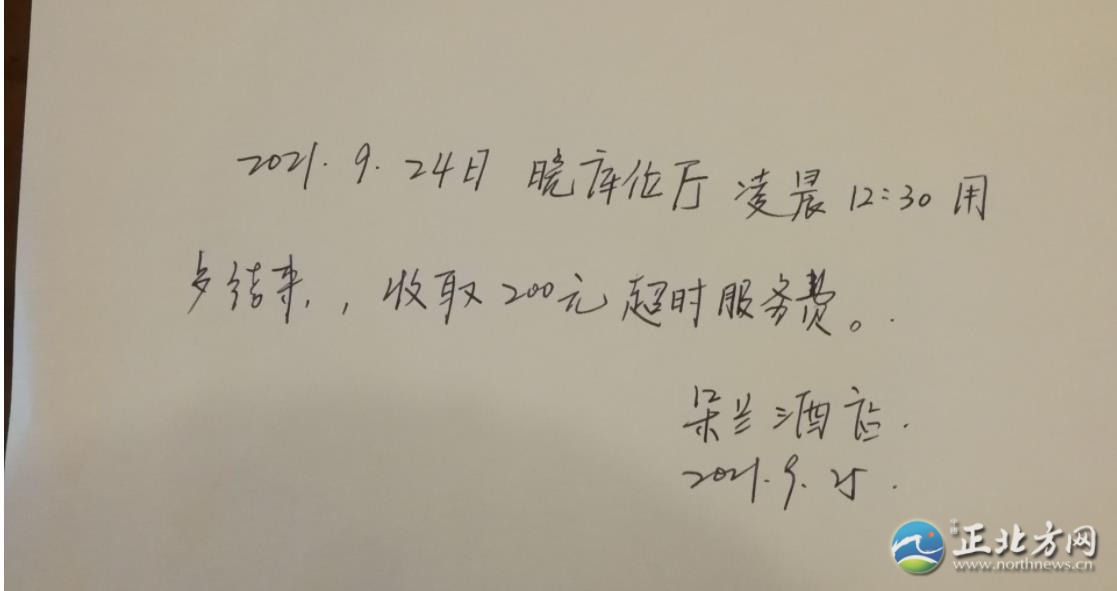 2021.9.24日 晓库伦厅 凌晨12:30用
歺结束,，收取200元超时服务费。.
朵兰酒店.
2021.9.25.
正北方网
www.northnews.cn